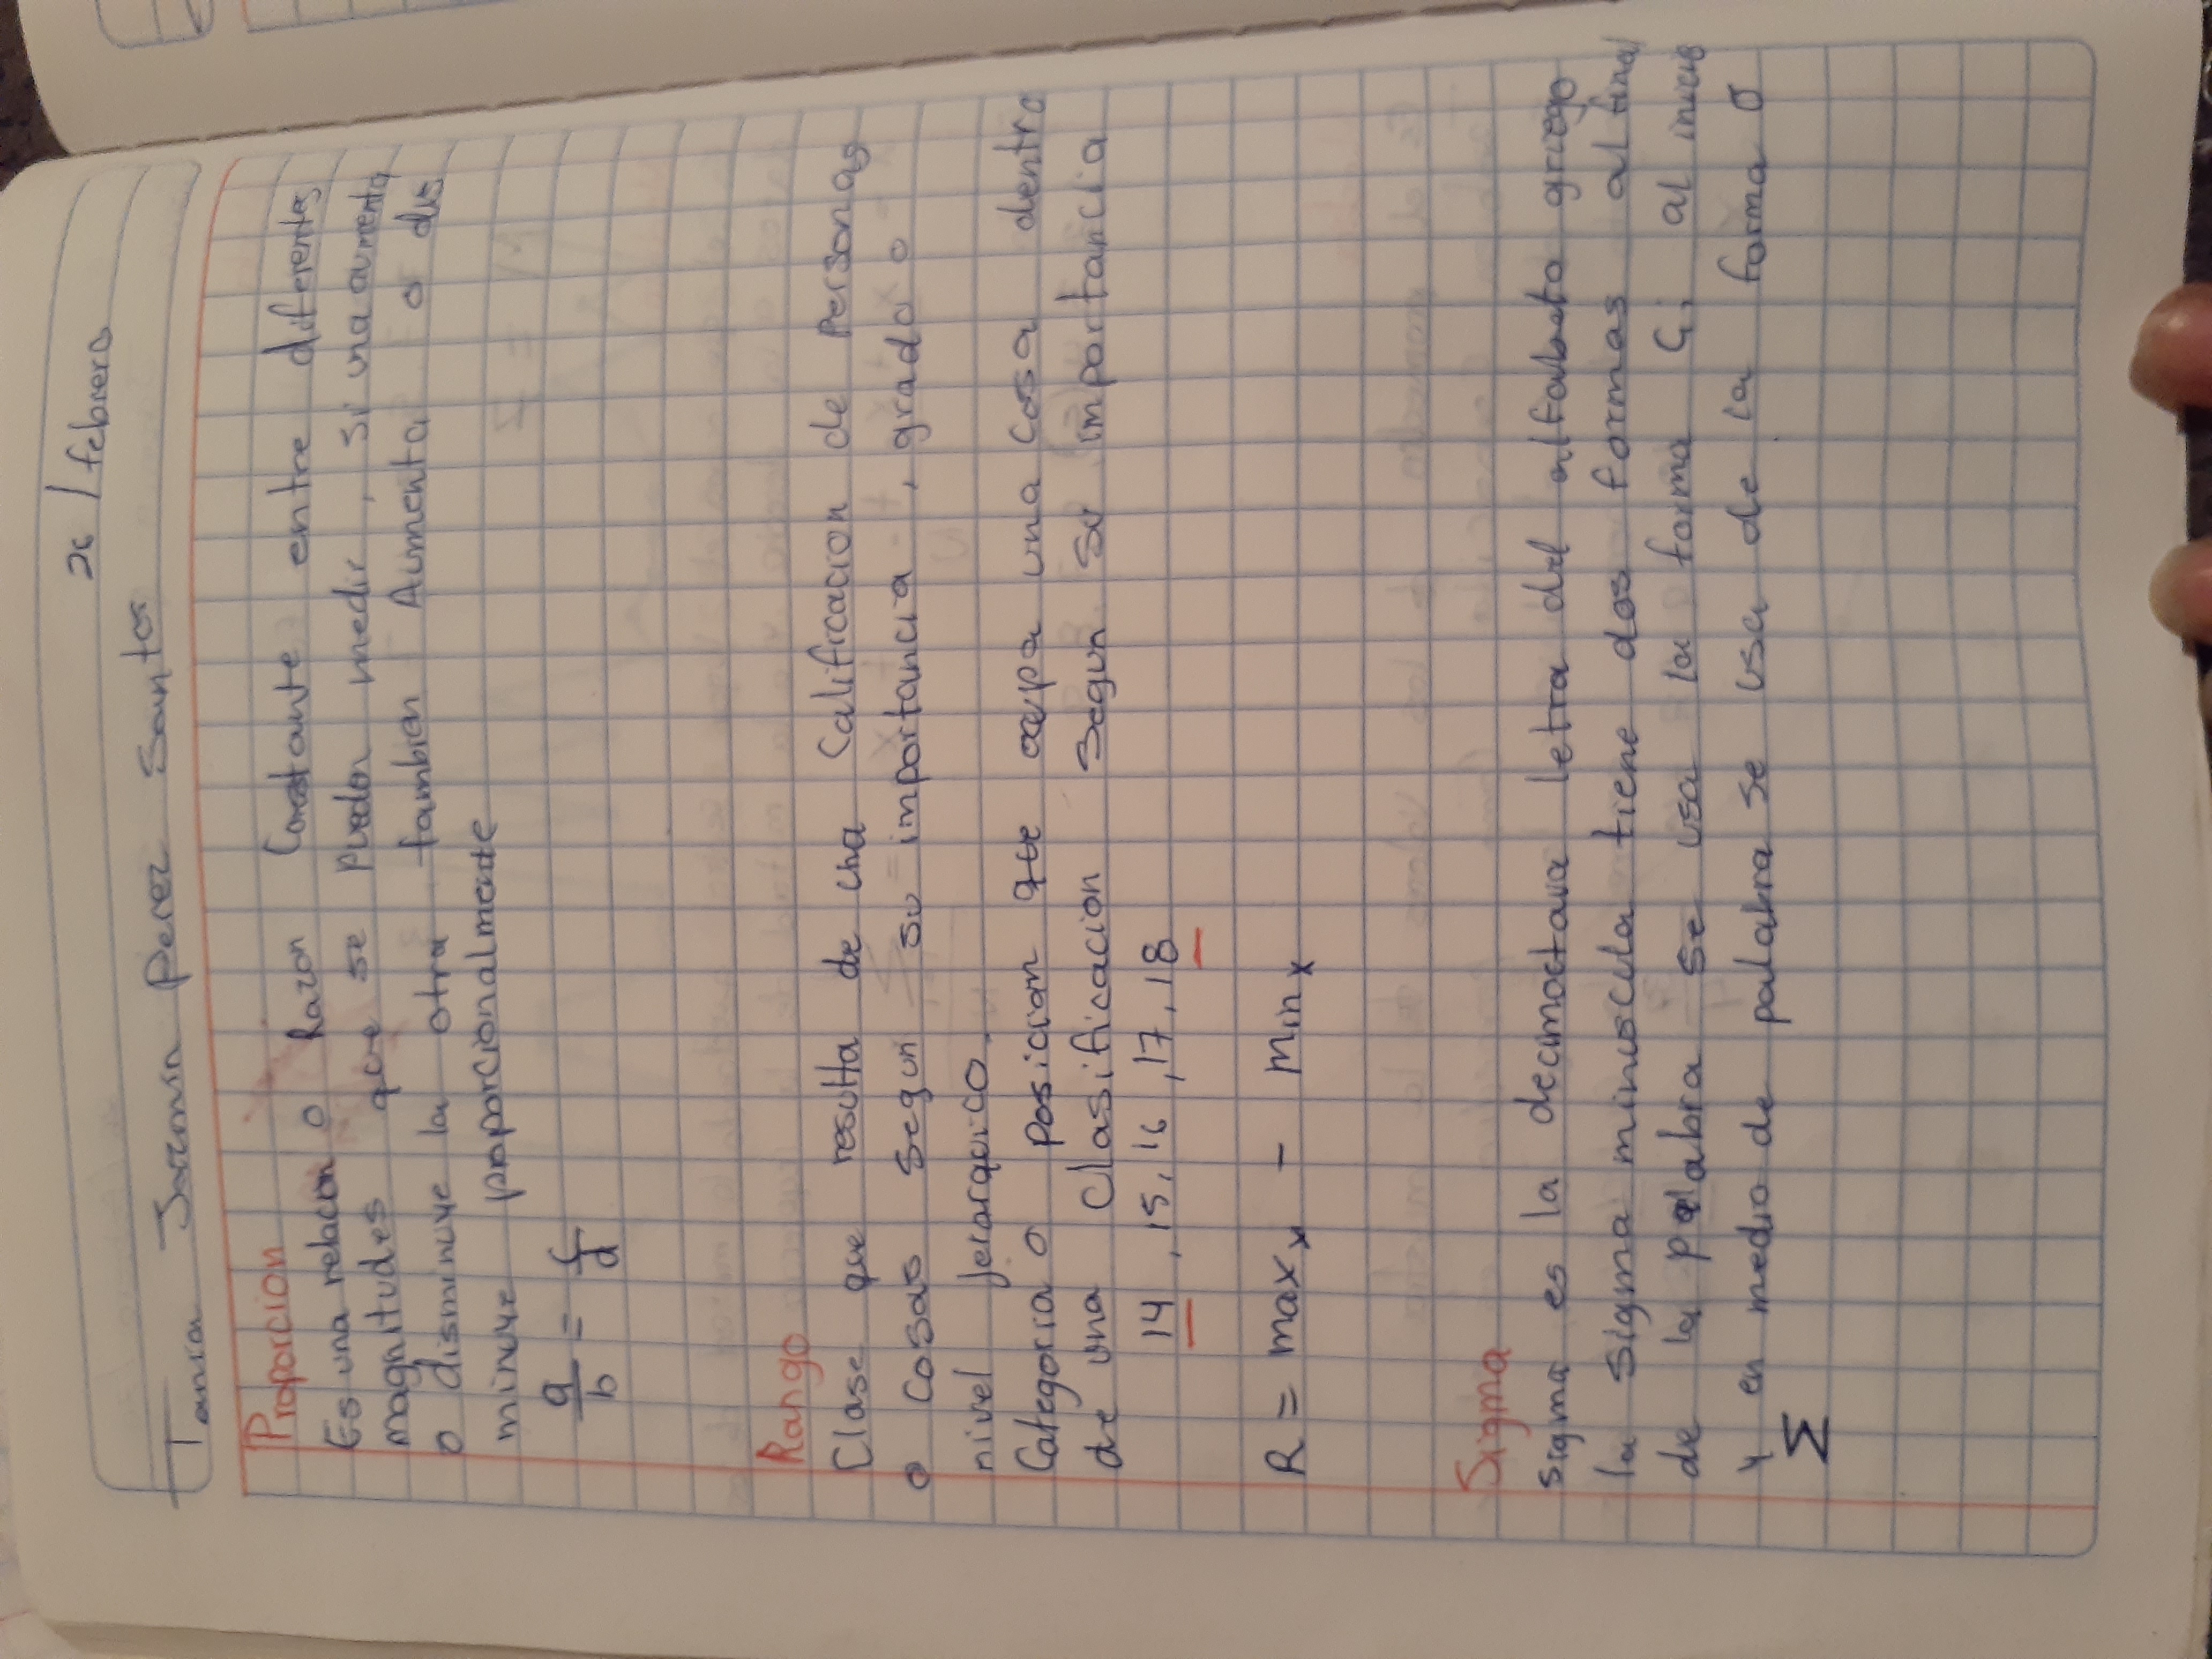 26 / febrero
Tania Jazmin Perez Santos
Proporcion
Es una relacion o Razon Constante entre diferentes
magnitudes que se pueden medir, si una aumenta
o disminuye la otra tambien Aumenta o dis
minuye proporcionalmente
a/b = c/d
Rango
Clase que resulta de una Calificacion de Personas
o cosas segun su importancia, grado o
nivel Jerarquico.
Categoria o posicion que ocupa una cosa dentro
de una clasificacion segun su importancia
14, 15, 16, 17, 18
R = maxx - Minx
Sigma
sigma es la decimoctava letra del alfabeto griego
la sigma minuscula tiene dos formas al final
de la palabra se usa la forma ς; al inicio
y en medio de palabra se usa de la forma σ
Σ